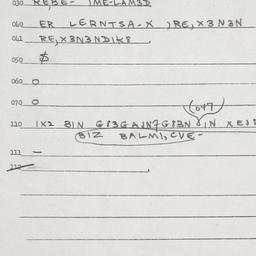 030 REBE- IME-LAM3D
040 ER LERNTSA-X )RE,X3N3N
041 RE,X3N3ND1K8
050 $
060 O
070 O
(047)
110 1X2 BIN G83GAJN7G83N IN XEJ
BIZ BALM1,CVE-
111 —
112